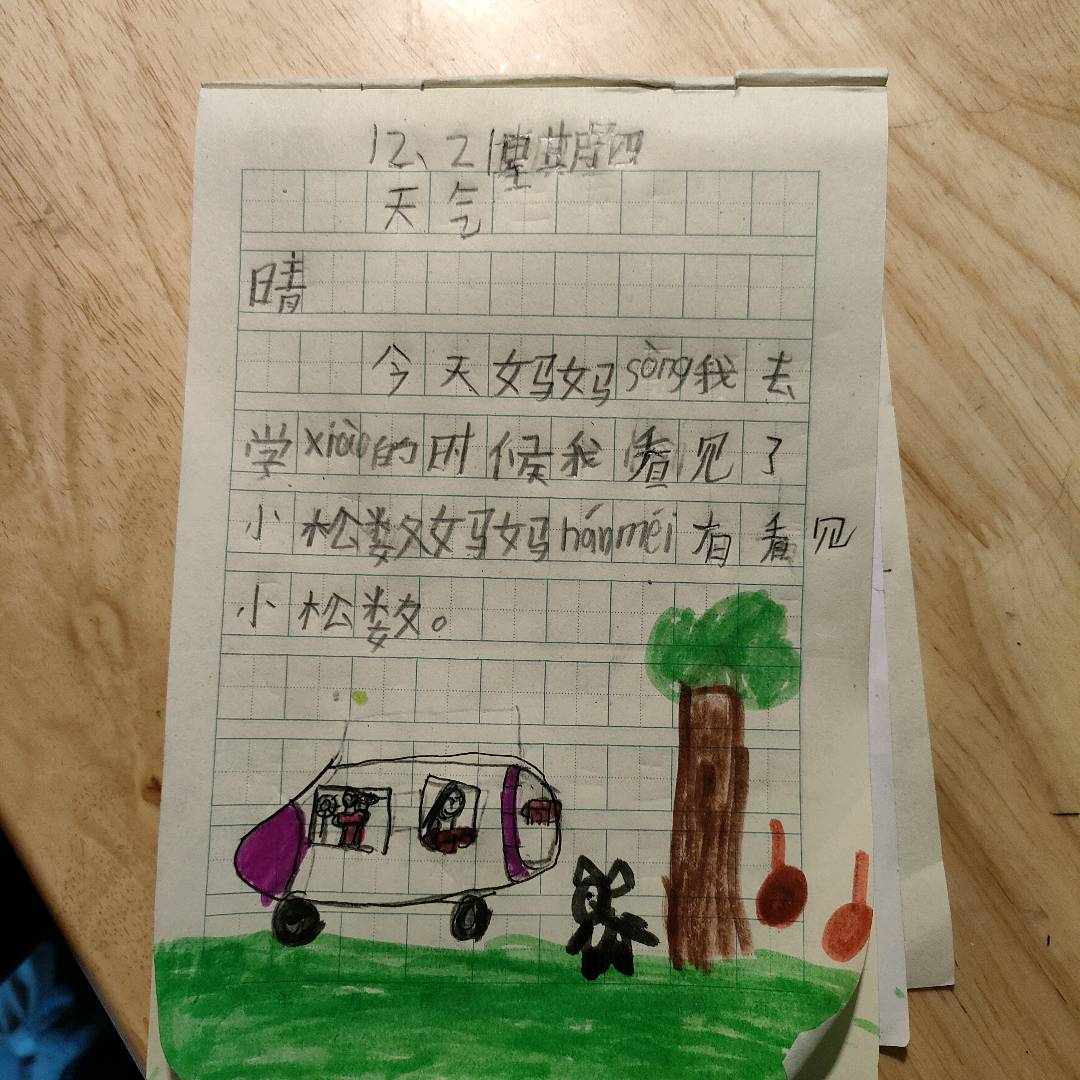 12、21星期四
天气
晴
今天妈妈sòng我去
学xiào的时候我看见了
小松数妈妈hánméi有看见
小松数。